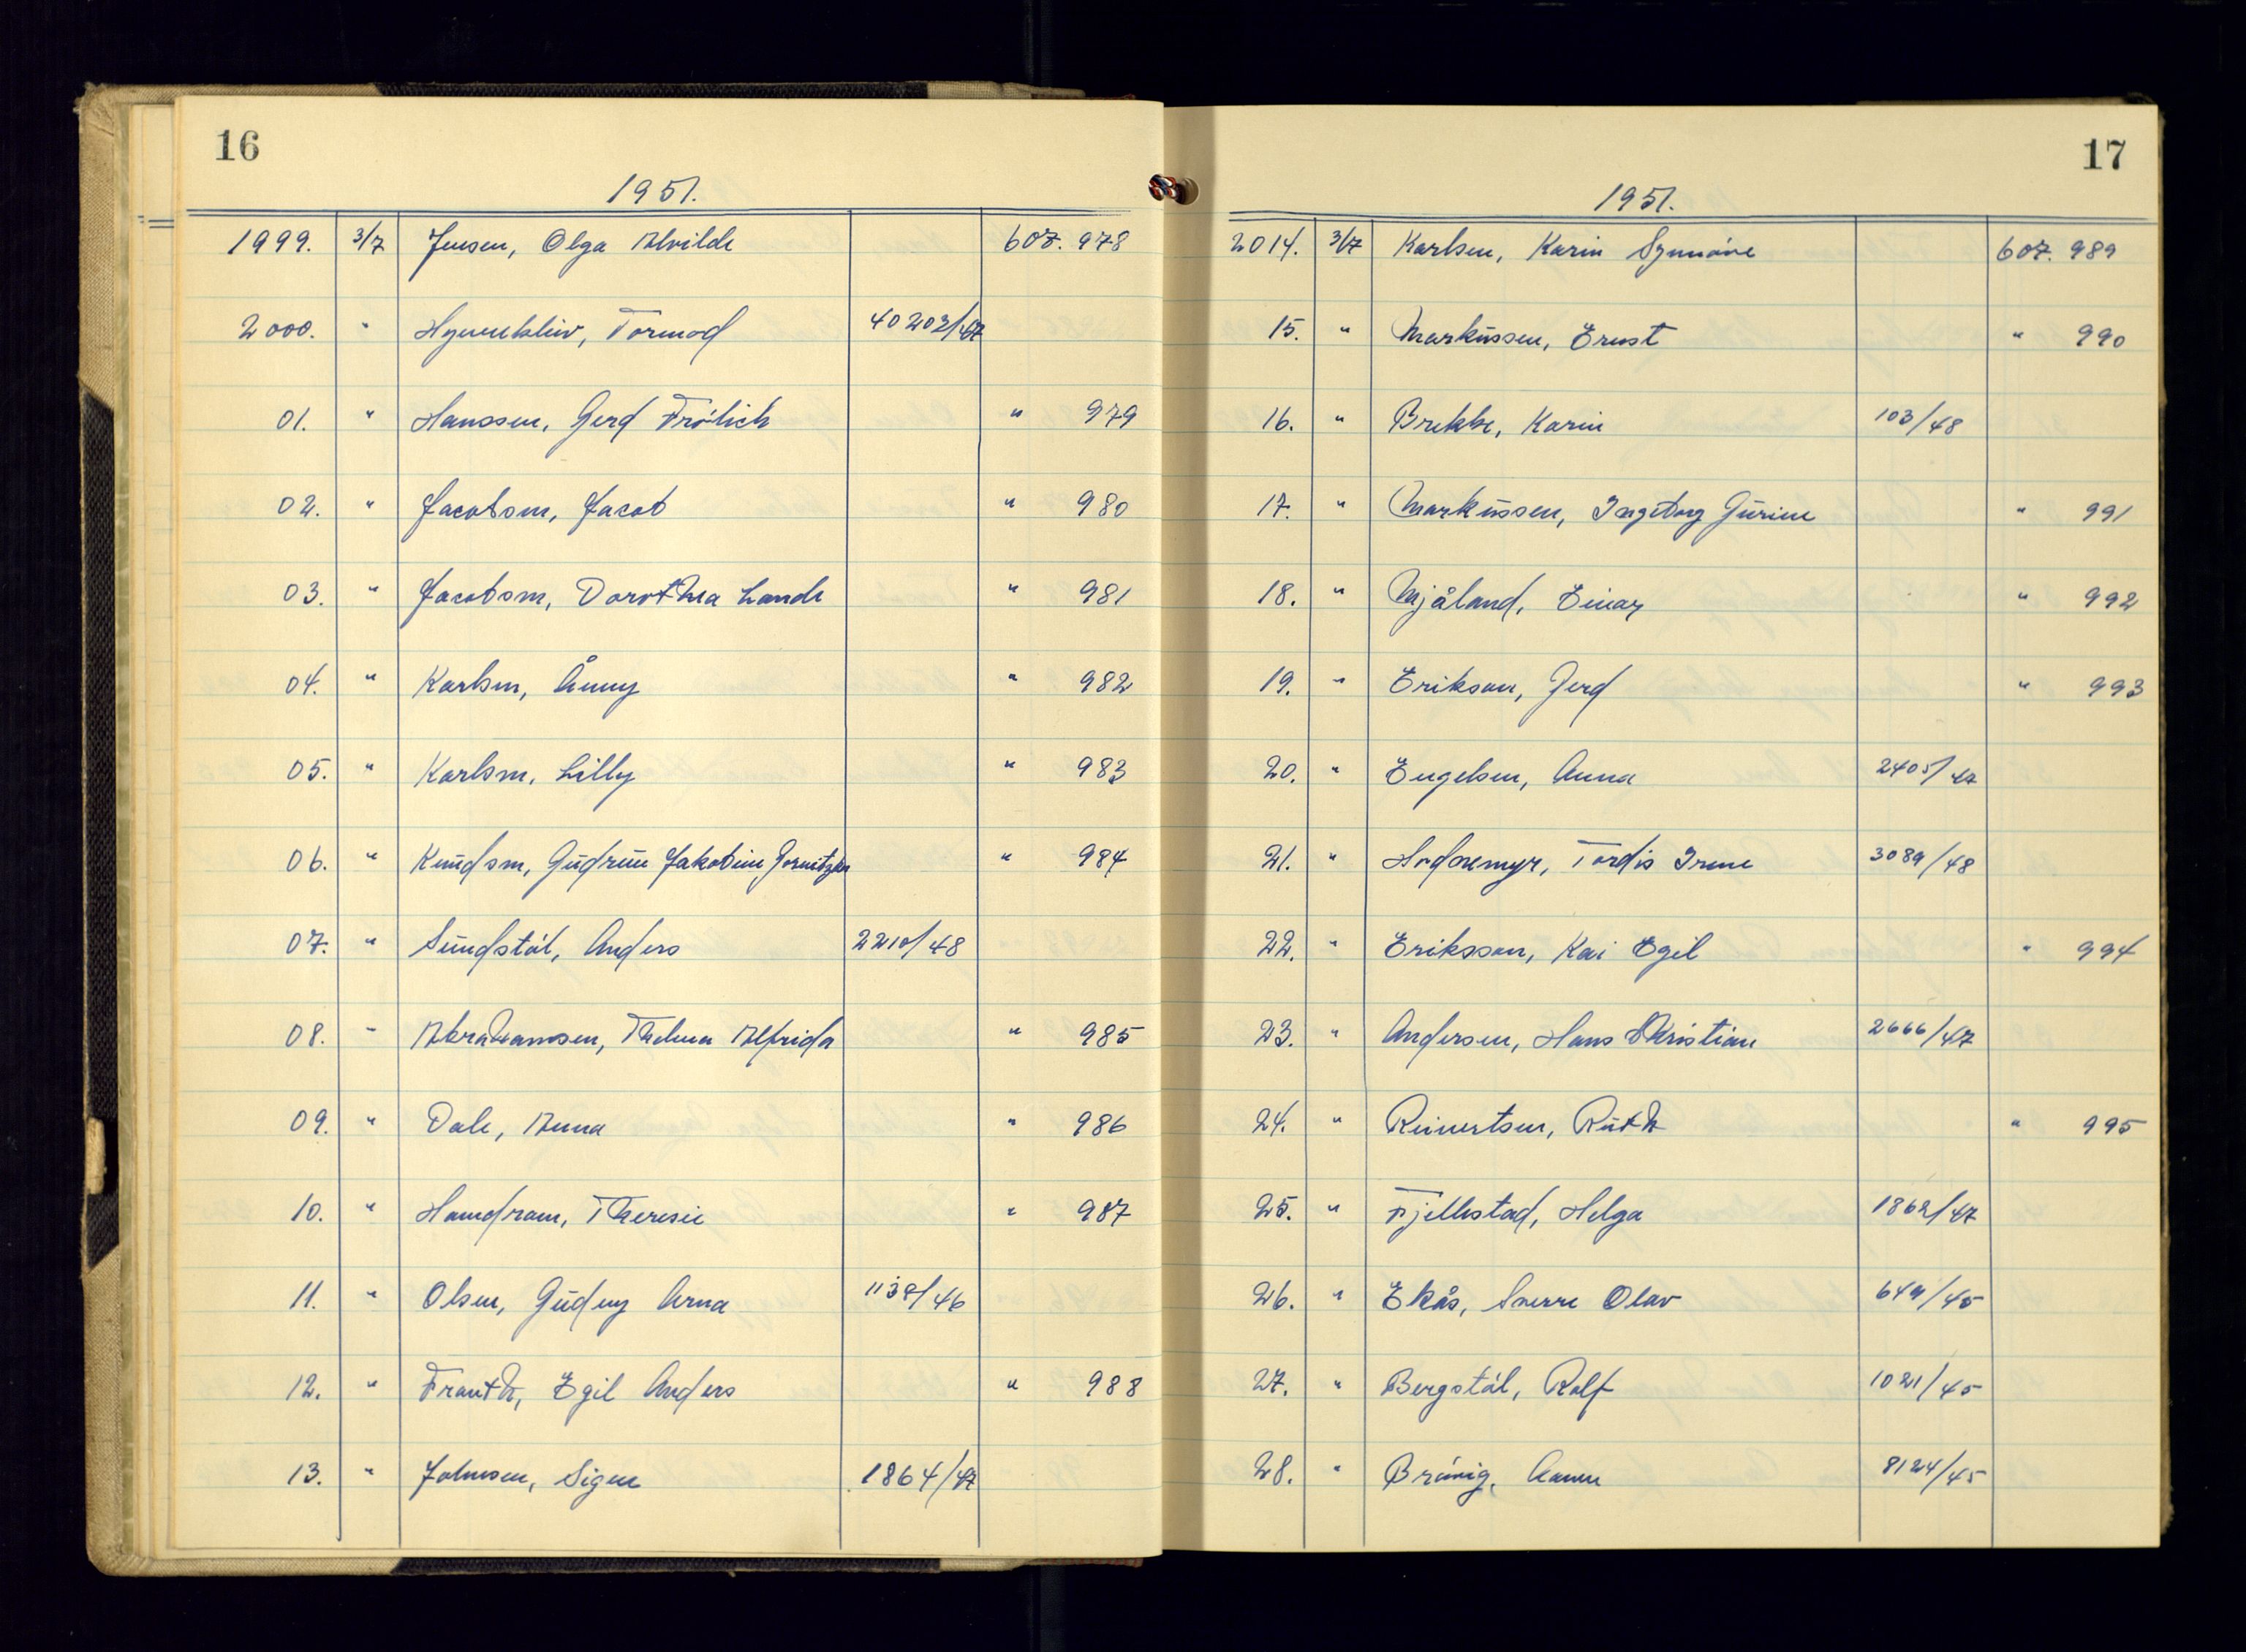 16
1951.
1999. 3/7 Jensen, Olga Alvilde 607.978
2000. " Tormod 40202/47
01. " Hanssen, Gerd Frölich " 979
02. " Jacobsen, Jacob " 980
03. " Jacobsen, Dorothea Lande " 981
04. " Karlsen, Ånny " 982
05. " Karlsen, Lilly " 983
06. " Knudsen, Gudrun Jakobine " 984
07. " Sundstøl, Anders 2210/48
08. " Abrahamsen, Thelma Alfrida " 985
09. " Dale, Anna " 986
10. " Hamdram, Theresie " 987
11. " Olsen, Gudny Arna 1138/46
12. " Franth, Egil Anders " 988
13. " Johnsen, Signe 1864/47
17
1951.
2014. 3/7 Karlsen, Karin Synnøve 607.989
15. " Markussen, Ernst " 990
16. " Brekke, Karin 103/48
17. " Markussen, Ingeborg Gurine " 991
18. " Mjåland, Einar " 992
19. " Erikson, Gerd " 993
20. " Engelsen, Anna 2405/47
21. " Hodnemyr, Tordis Irene 3089/48
22. " Eriksson, Kai Egil " 994
23. " Andersen, Hans Kristian 2666/47
24. " Reinertsen, Ruth " 995
25. " Fjellestad, Helga 1862/47
26. " Ekås, Sverre Olav 649/45
27. " Bergstøl, Rolf 1021/45
28. " Brøvig, Aanen 8124/45